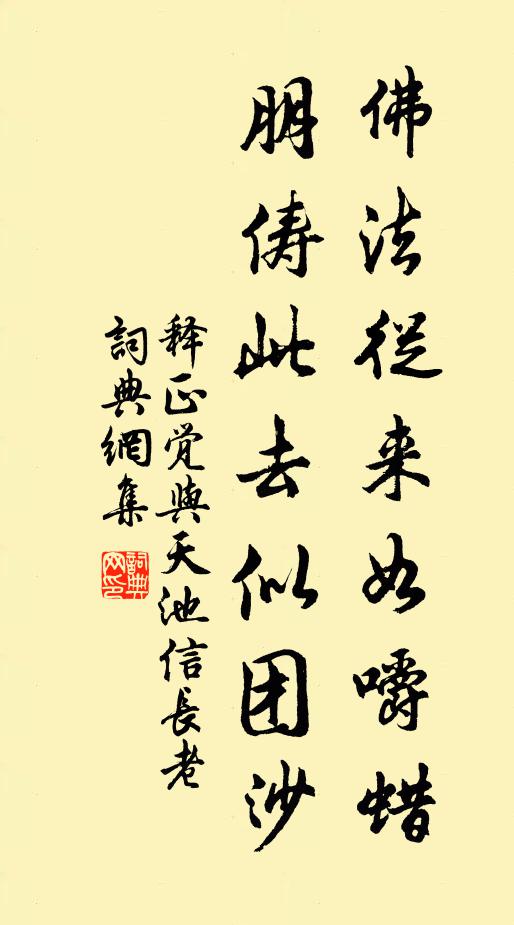 佛法從来如嚼蜡
朋俦此去似团沙
释正觉與天池信長老
詞典網集
詞典网印